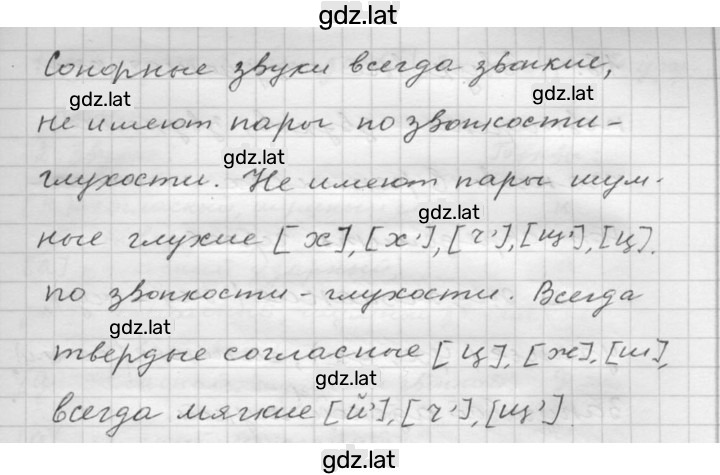 gdz.lat
Сонорные звуки всегда звонкие,
gdz.lat
gdz.lat
не имеют пары по звонкости-
gdz.lat
глухости. Не имеют пары шум-
gdz.lat
ные глухие [х], [х'], [ч'], [щ'], [ц].
по звонкости-глухости. Всегда
gdz.lat
твердые согласные [ц], [ж], [ш],
gdz.lat
всегда мягкие [й'], [ч'], [щ']
gdz.lat